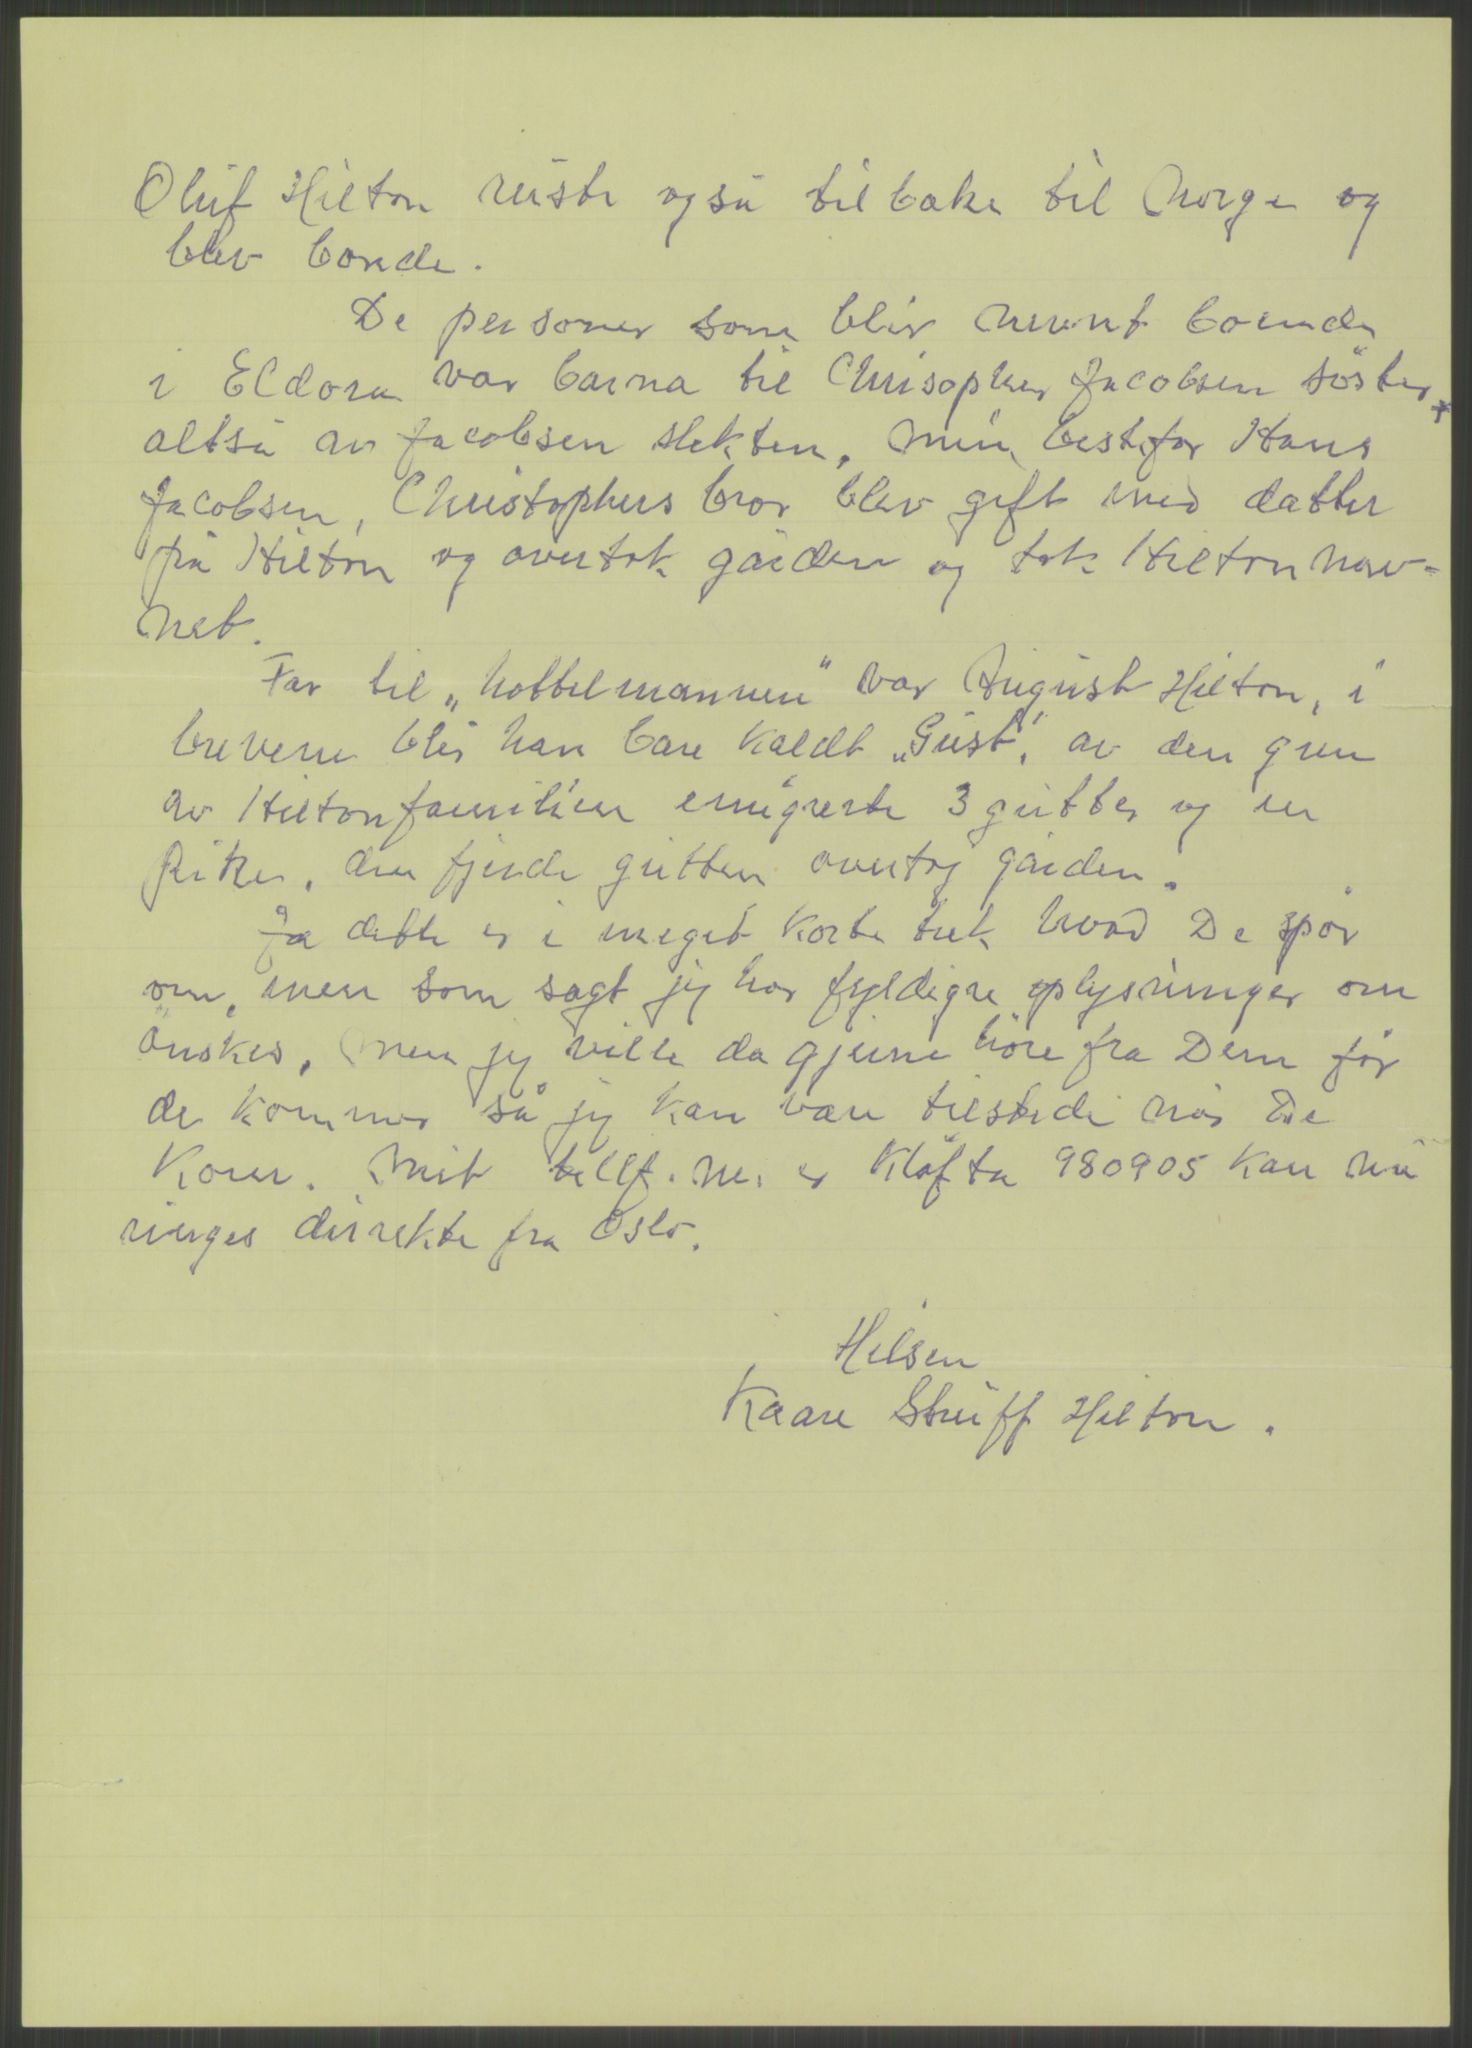 Oluf Hilton reiste også tilbake til Norge og
blev bonde.
De personer som blir nevnt boende
i Eldora var barna til Chrisopher Jacobsen söster,
altså av Jacobsen slekten. Min bestefar Hans
Jacobsen, Christophers bror blev gift med datter
på Hilton og overtok gården og tok Hilton nav-
net.
Far til „hottelmannen" var August Hilton, i
brevene blir han bare kaldt „Gust", av den gren
av Hiltonfamilien emigrerte 3 gutter og en
pike, den fjerde gutten overtog gården.
Ja dette er i meget korte trek hvad De spör
om, men som sagt jeg har fyldigre oplysninger om
önskes. Men jeg ville da gjerne höre fra Dem för
de kommer så jeg kan være tilstede når De
kom. Mit tellf. nr. er Klöfta 980905 kan nu
ringes dirrekte fra Oslo.
Hilsen
Kaare Struff Hilton.